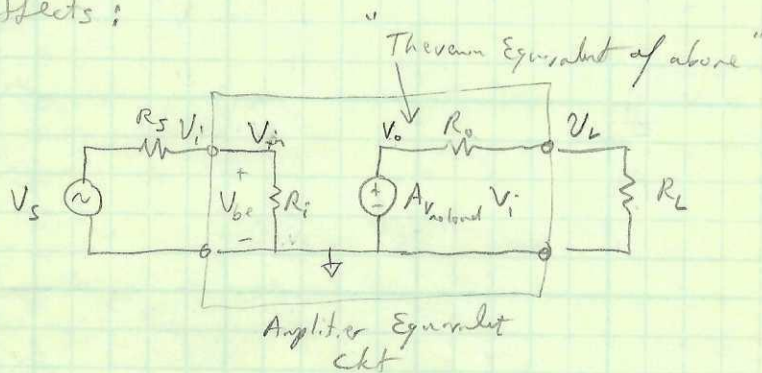 ffects :
"Thevenin Equivalent of above"
Rs Vi Vin Vo Ro VL
Vs + Vbe - Ri + - Av no load Vi RL
Amplifier Equivalent
Ckt